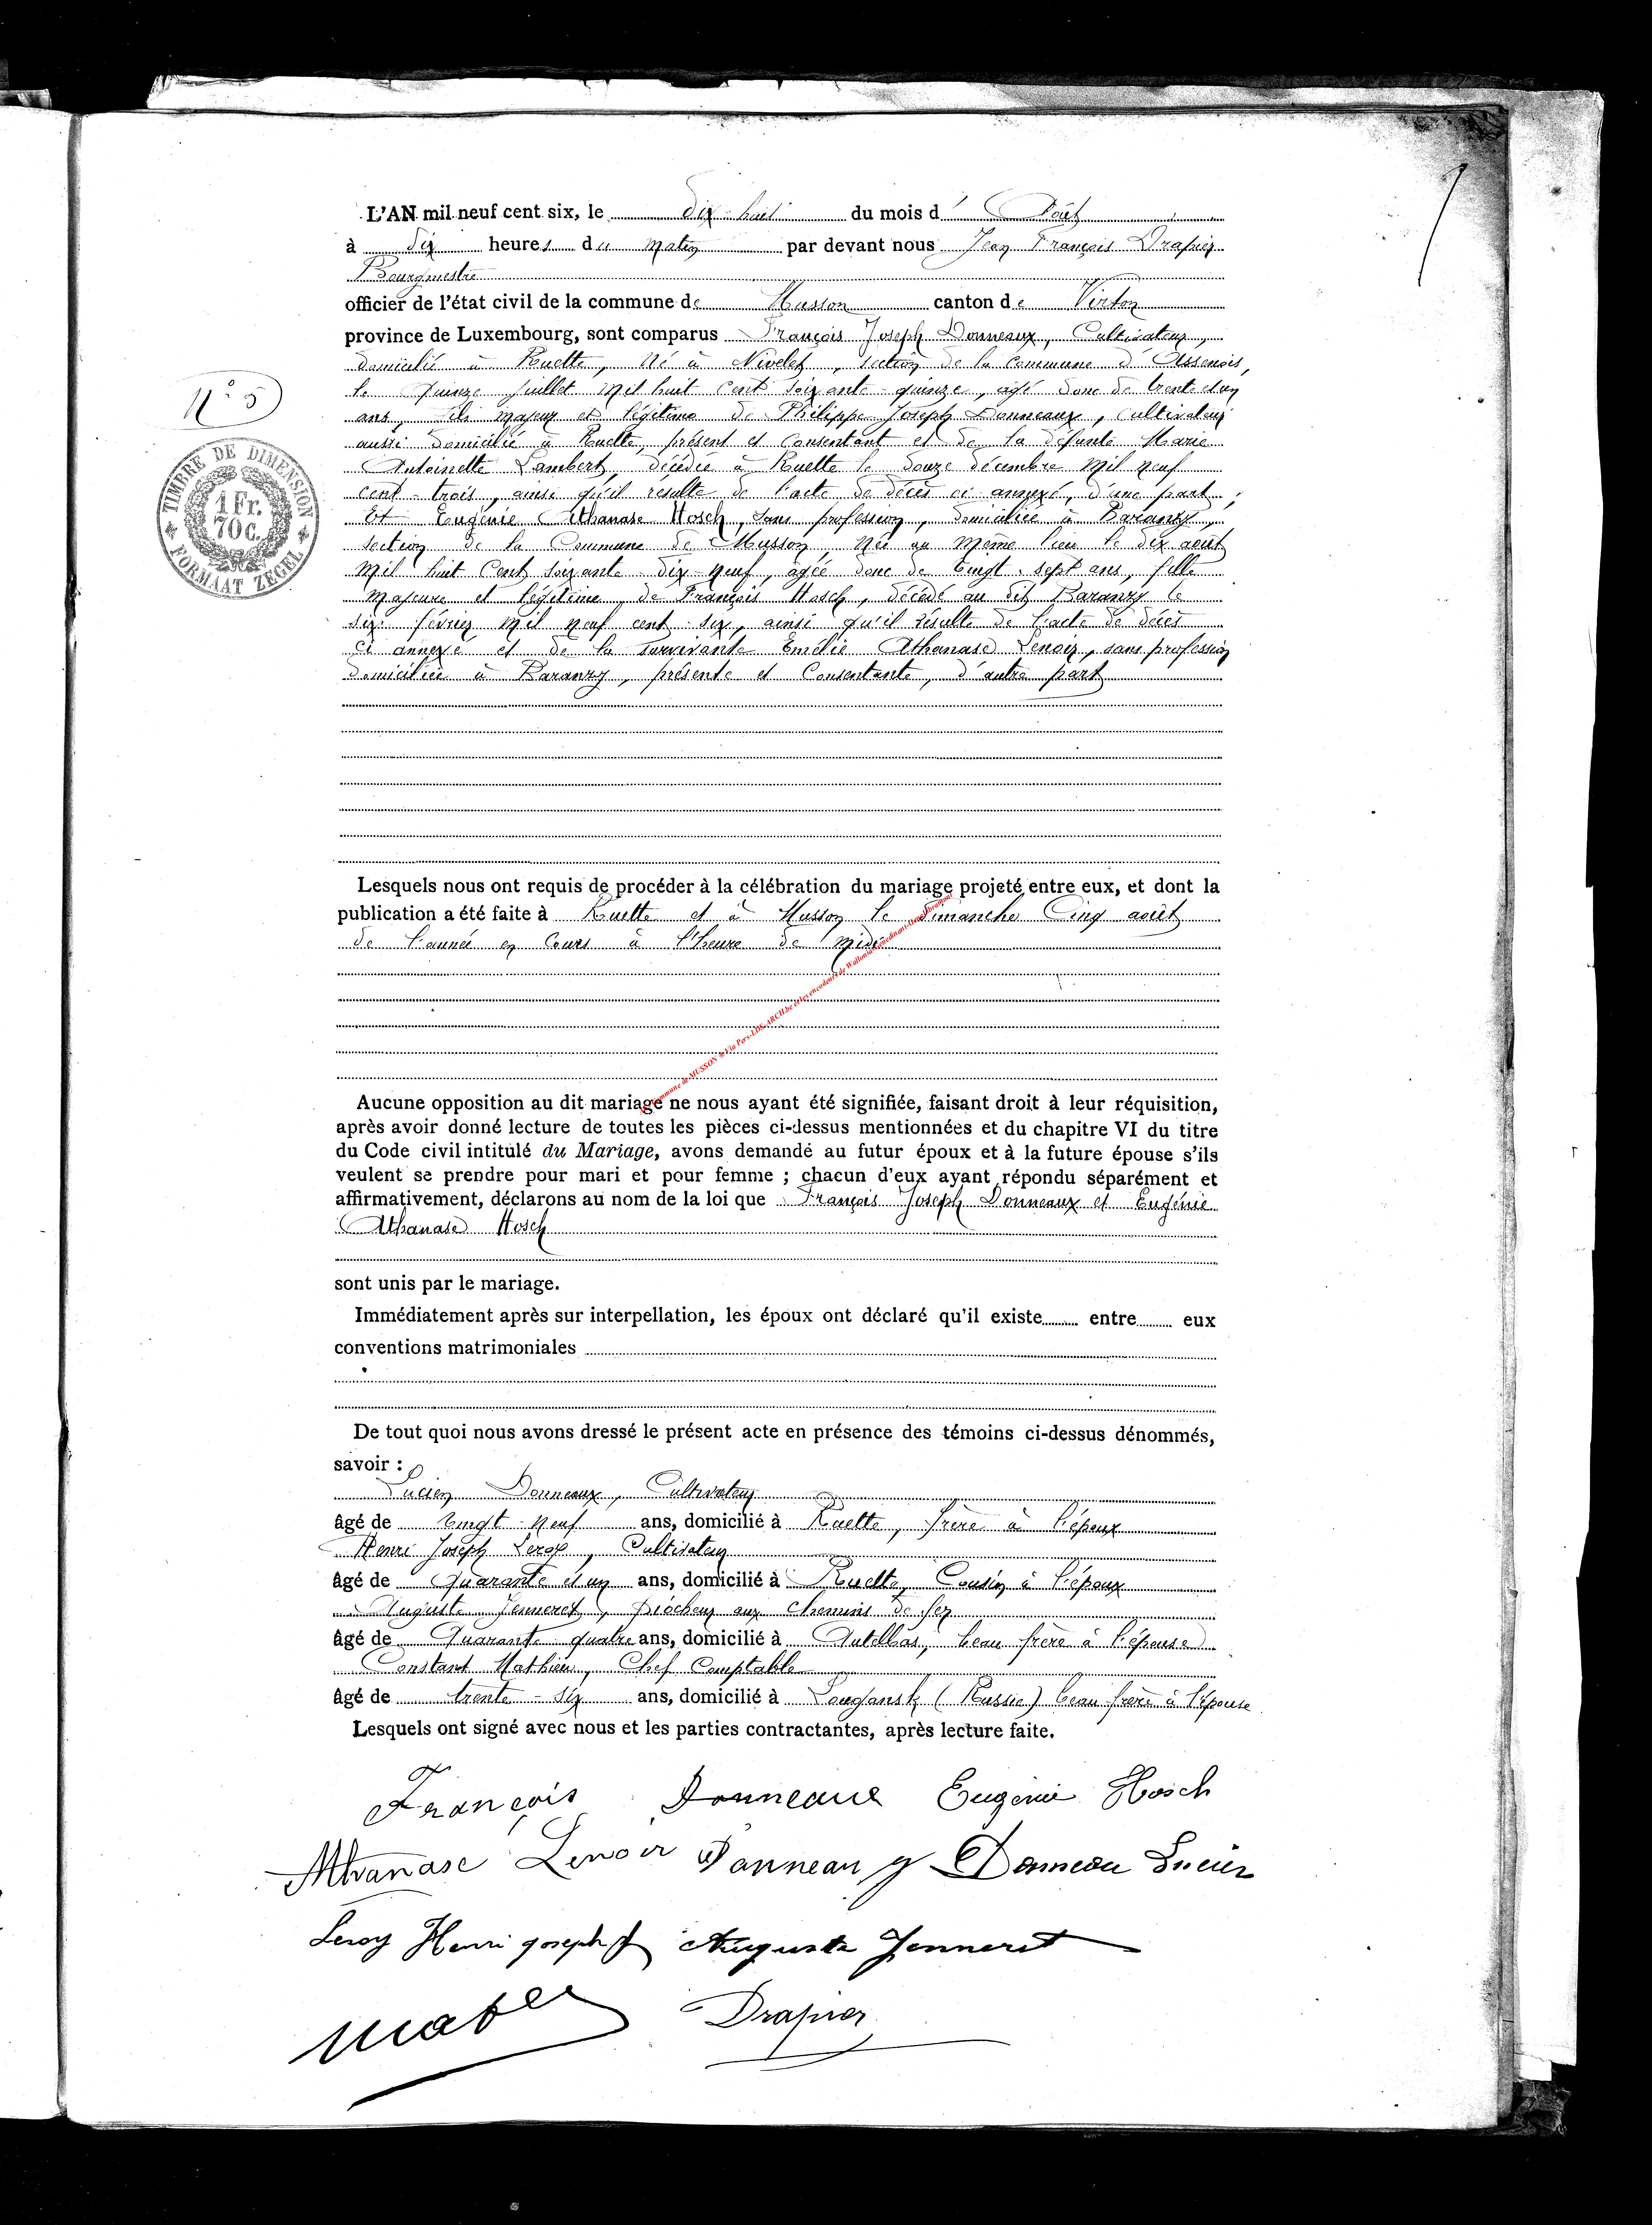 L'AN mil neuf cent six, le dix-huit du mois d'Août
à dix heures du matin par devant nous Jean François Drapier
Bourgmestre
officier de l'état civil de la commune de Musson canton de Virton
province de Luxembourg, sont comparus François Joseph Donneaux, Cultivateur,
domicilié à Ruette, Né à Nivelet, section de la Commune d'Assenois,
le quinze juillet mil huit cent soixante-quinze, âgé donc de trente et un
ans, fils majeur et légitime de Philippe Joseph Donneaux, cultivateur
aussi domicilié à Ruette, présent et consentant et de la défunte Marie
Antoinette Lambert, décédée à Ruette le douze décembre mil neuf
cent-trois, ainsi qu'il résulte de l'acte de décès ci annexé, d'une part;
Et Eugénie Athanase Hosch, sans profession, domiciliée à Baranzy,
section de la Commune de Musson, née au même lieu le dix août
mil huit cent soixante-dix-neuf, âgée donc de vingt-sept ans, fille
majeure et légitime de François Hosch, décédé au dit Baranzy le
six février mil neuf cent six, ainsi qu'il résulte de l'acte de décès
ci annexé et de la survivante Emélie Athanase Lenoir, sans profession
domiciliée à Baranzy, présente et Consentante, d'autre part
N° 5
TIMBRE DE DIMENSION
1 Fr.
70 C.
FORMAAT ZEGEL
Lesquels nous ont requis de procéder à la célébration du mariage projeté entre eux, et dont la
publication a été faite à Ruette et à Musson le dimanche Cinq août
de l'année en cours à l'heure de midi
Aucune opposition au dit mariage ne nous ayant été signifiée, faisant droit à leur réquisition,
après avoir donné lecture de toutes les pièces ci-dessus mentionnées et du chapitre VI du titre
du Code civil intitulé du Mariage, avons demandé au futur époux et à la future épouse s'ils
veulent se prendre pour mari et pour femme ; chacun d'eux ayant répondu séparément et
affirmativement, déclarons au nom de la loi que François Joseph Donneaux et Eugénie
Athanase Hosch
sont unis par le mariage.
Immédiatement après sur interpellation, les époux ont déclaré qu'il existe entre eux
conventions matrimoniales
De tout quoi nous avons dressé le présent acte en présence des témoins ci-dessus dénommés,
savoir :
Lucien Donneaux, Cultivateur
âgé de vingt-neuf ans, domicilié à Ruette, frère à l'époux
Henri Joseph Leroy, Cultivateur
âgé de quarante et un ans, domicilié à Ruette, Cousin à l'époux
Auguste Jenneret, piocheur aux chemins de fer
âgé de Quarante-quatre ans, domicilié à Autelbas, beau frère à l'épouse
Constant Mathieu, Chef Comptable
âgé de trente-six ans, domicilié à Lougansk (Russie) beau frère à l'épouse
Lesquels ont signé avec nous et les parties contractantes, après lecture faite.
François Donneaux Eugénie Hosch
Athanase Lenoir Donneau Donneau Lucien
Leroy Henri joseph Auguste Jenneret
Drapier